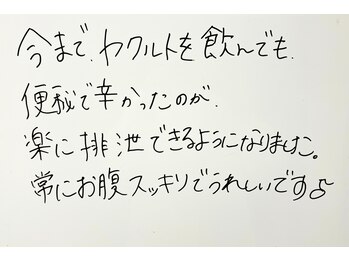 今まで、ヤクルトを飲んでも、
便秘で辛かったのが、
楽に排泄できるようになりました。
常にお腹スッキリでうれしいです♪